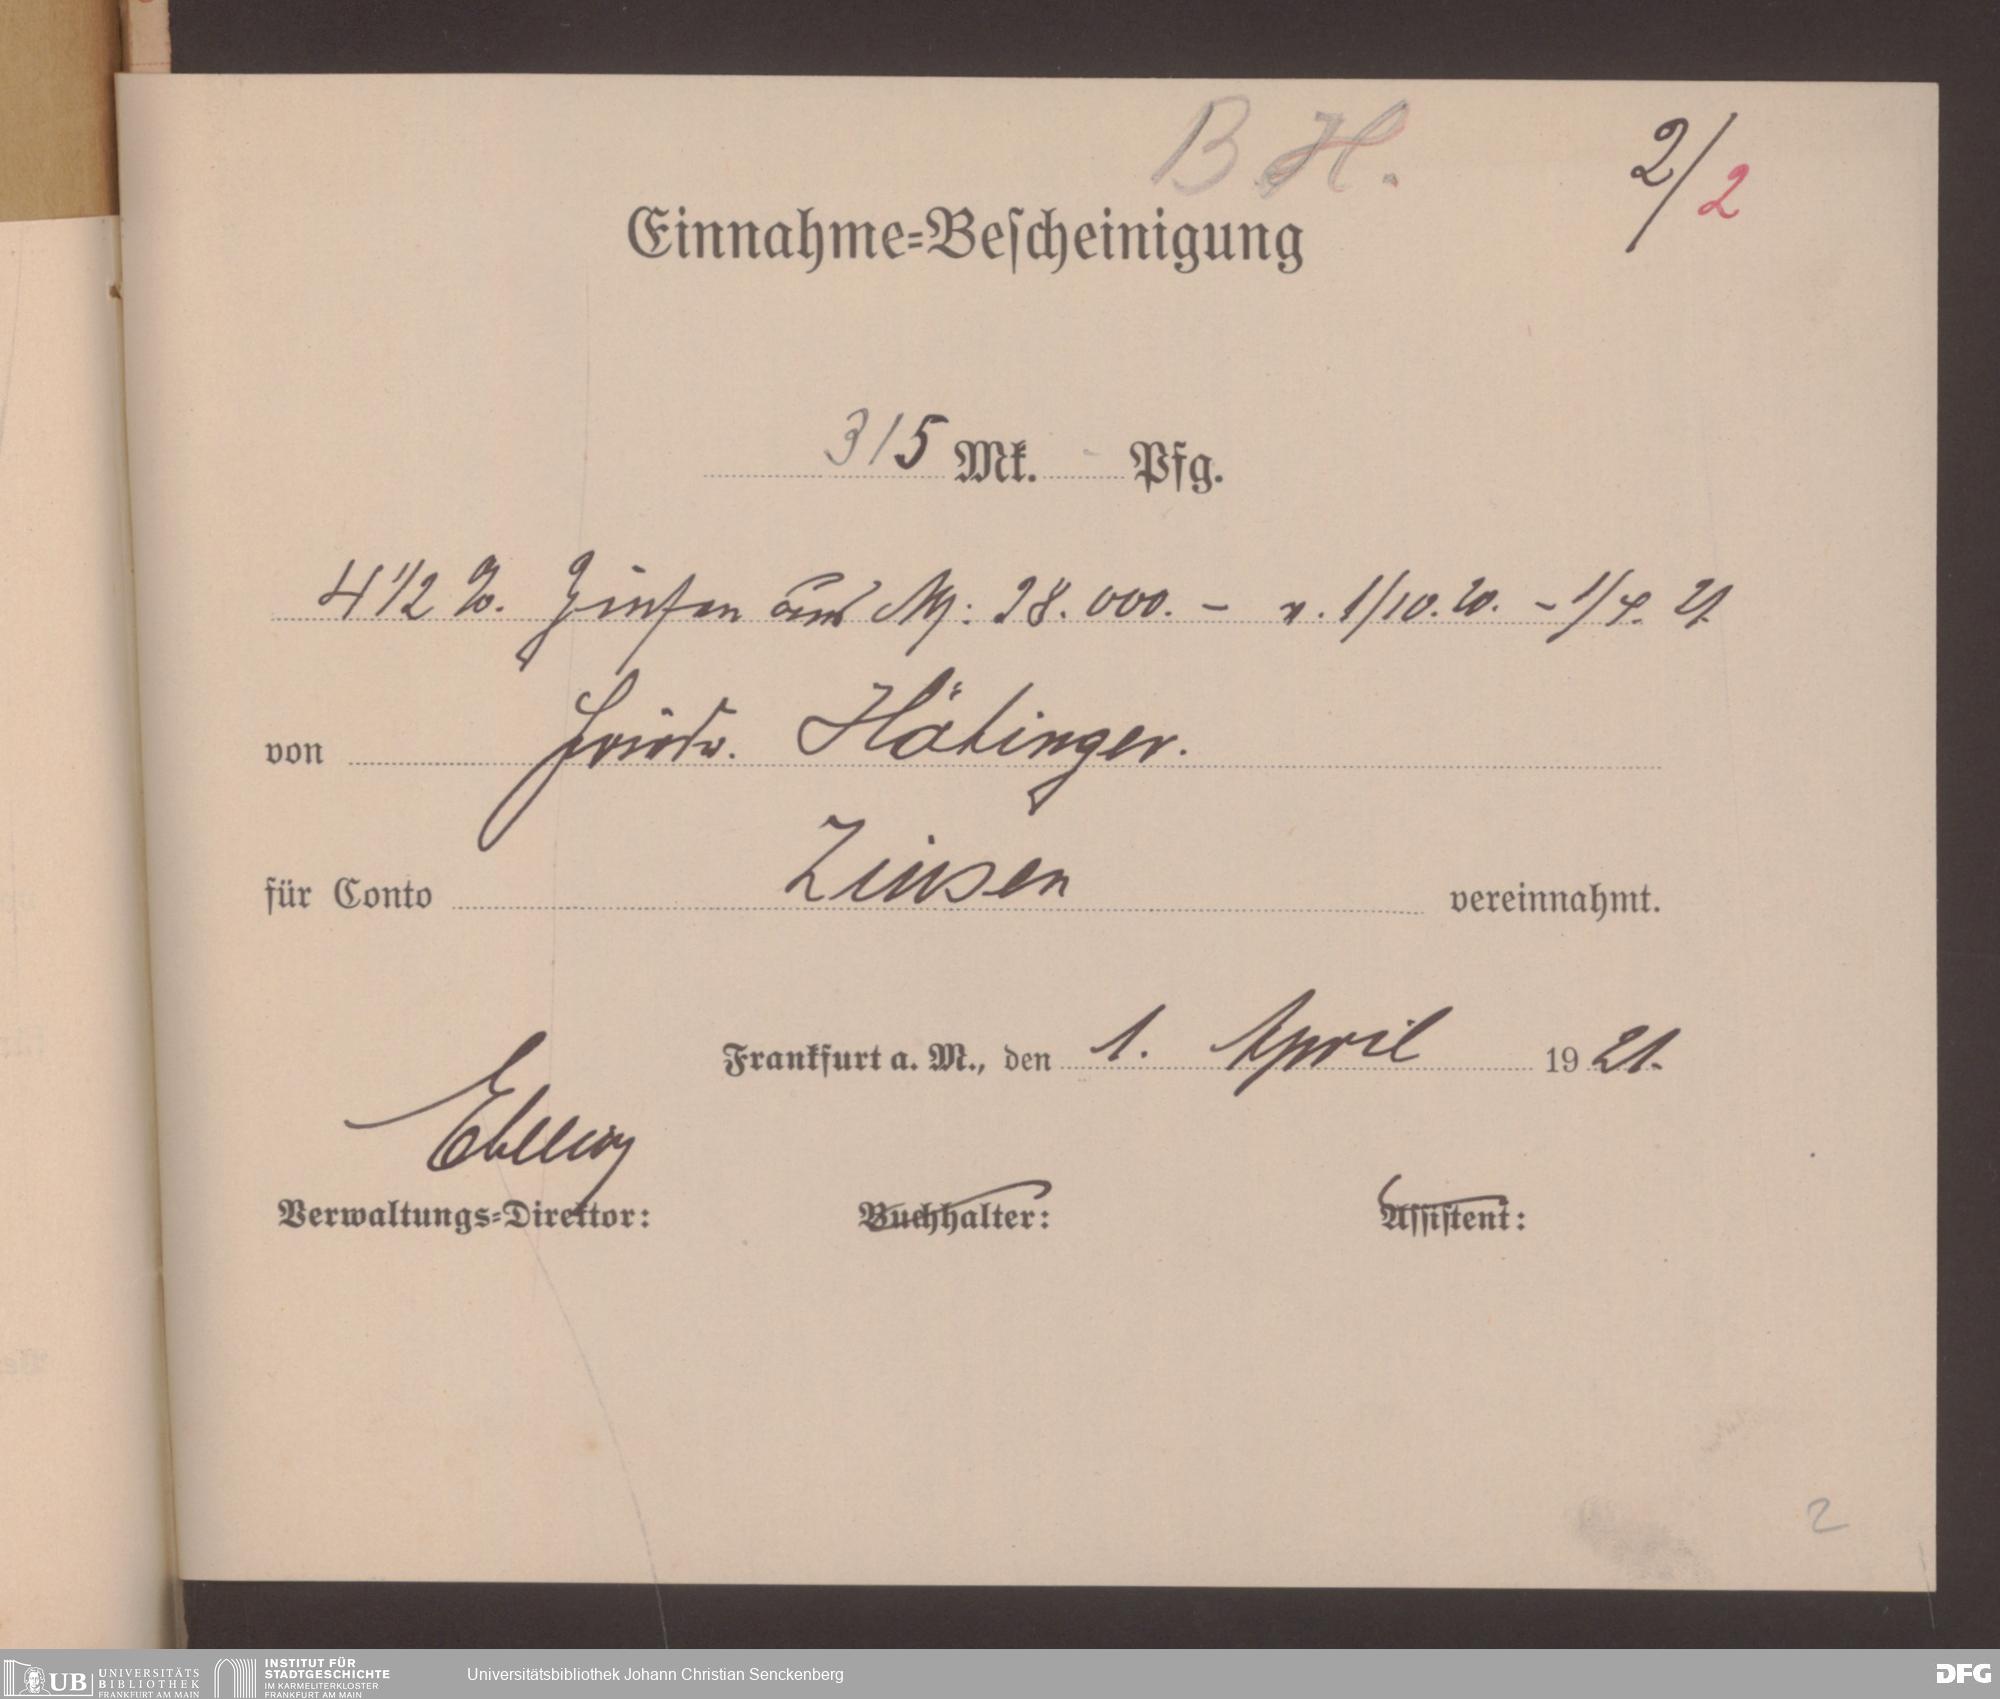 B.H.
2/2
Einnahme-Bescheinigung
315 Mk. - Pfg.
4 1/2 %. Zinsen aus M: 28.000. - v. 1/10.20. - 1/4. 21.
von Friedr. Hätinger.
für Conto Zinsen vereinnahmt.
Frankfurt a. M., den 1. April 1921.
Verwaltungs-Direktor: Buchhalter: Assistent:
2
UB UNIVERSITÄTS BIBLIOTHEK FRANKFURT AM MAIN
INSTITUT FÜR STADTGESCHICHTE IM KARMELITERKLOSTER FRANKFURT AM MAIN
Universitätsbibliothek Johann Christian Senckenberg
DFG